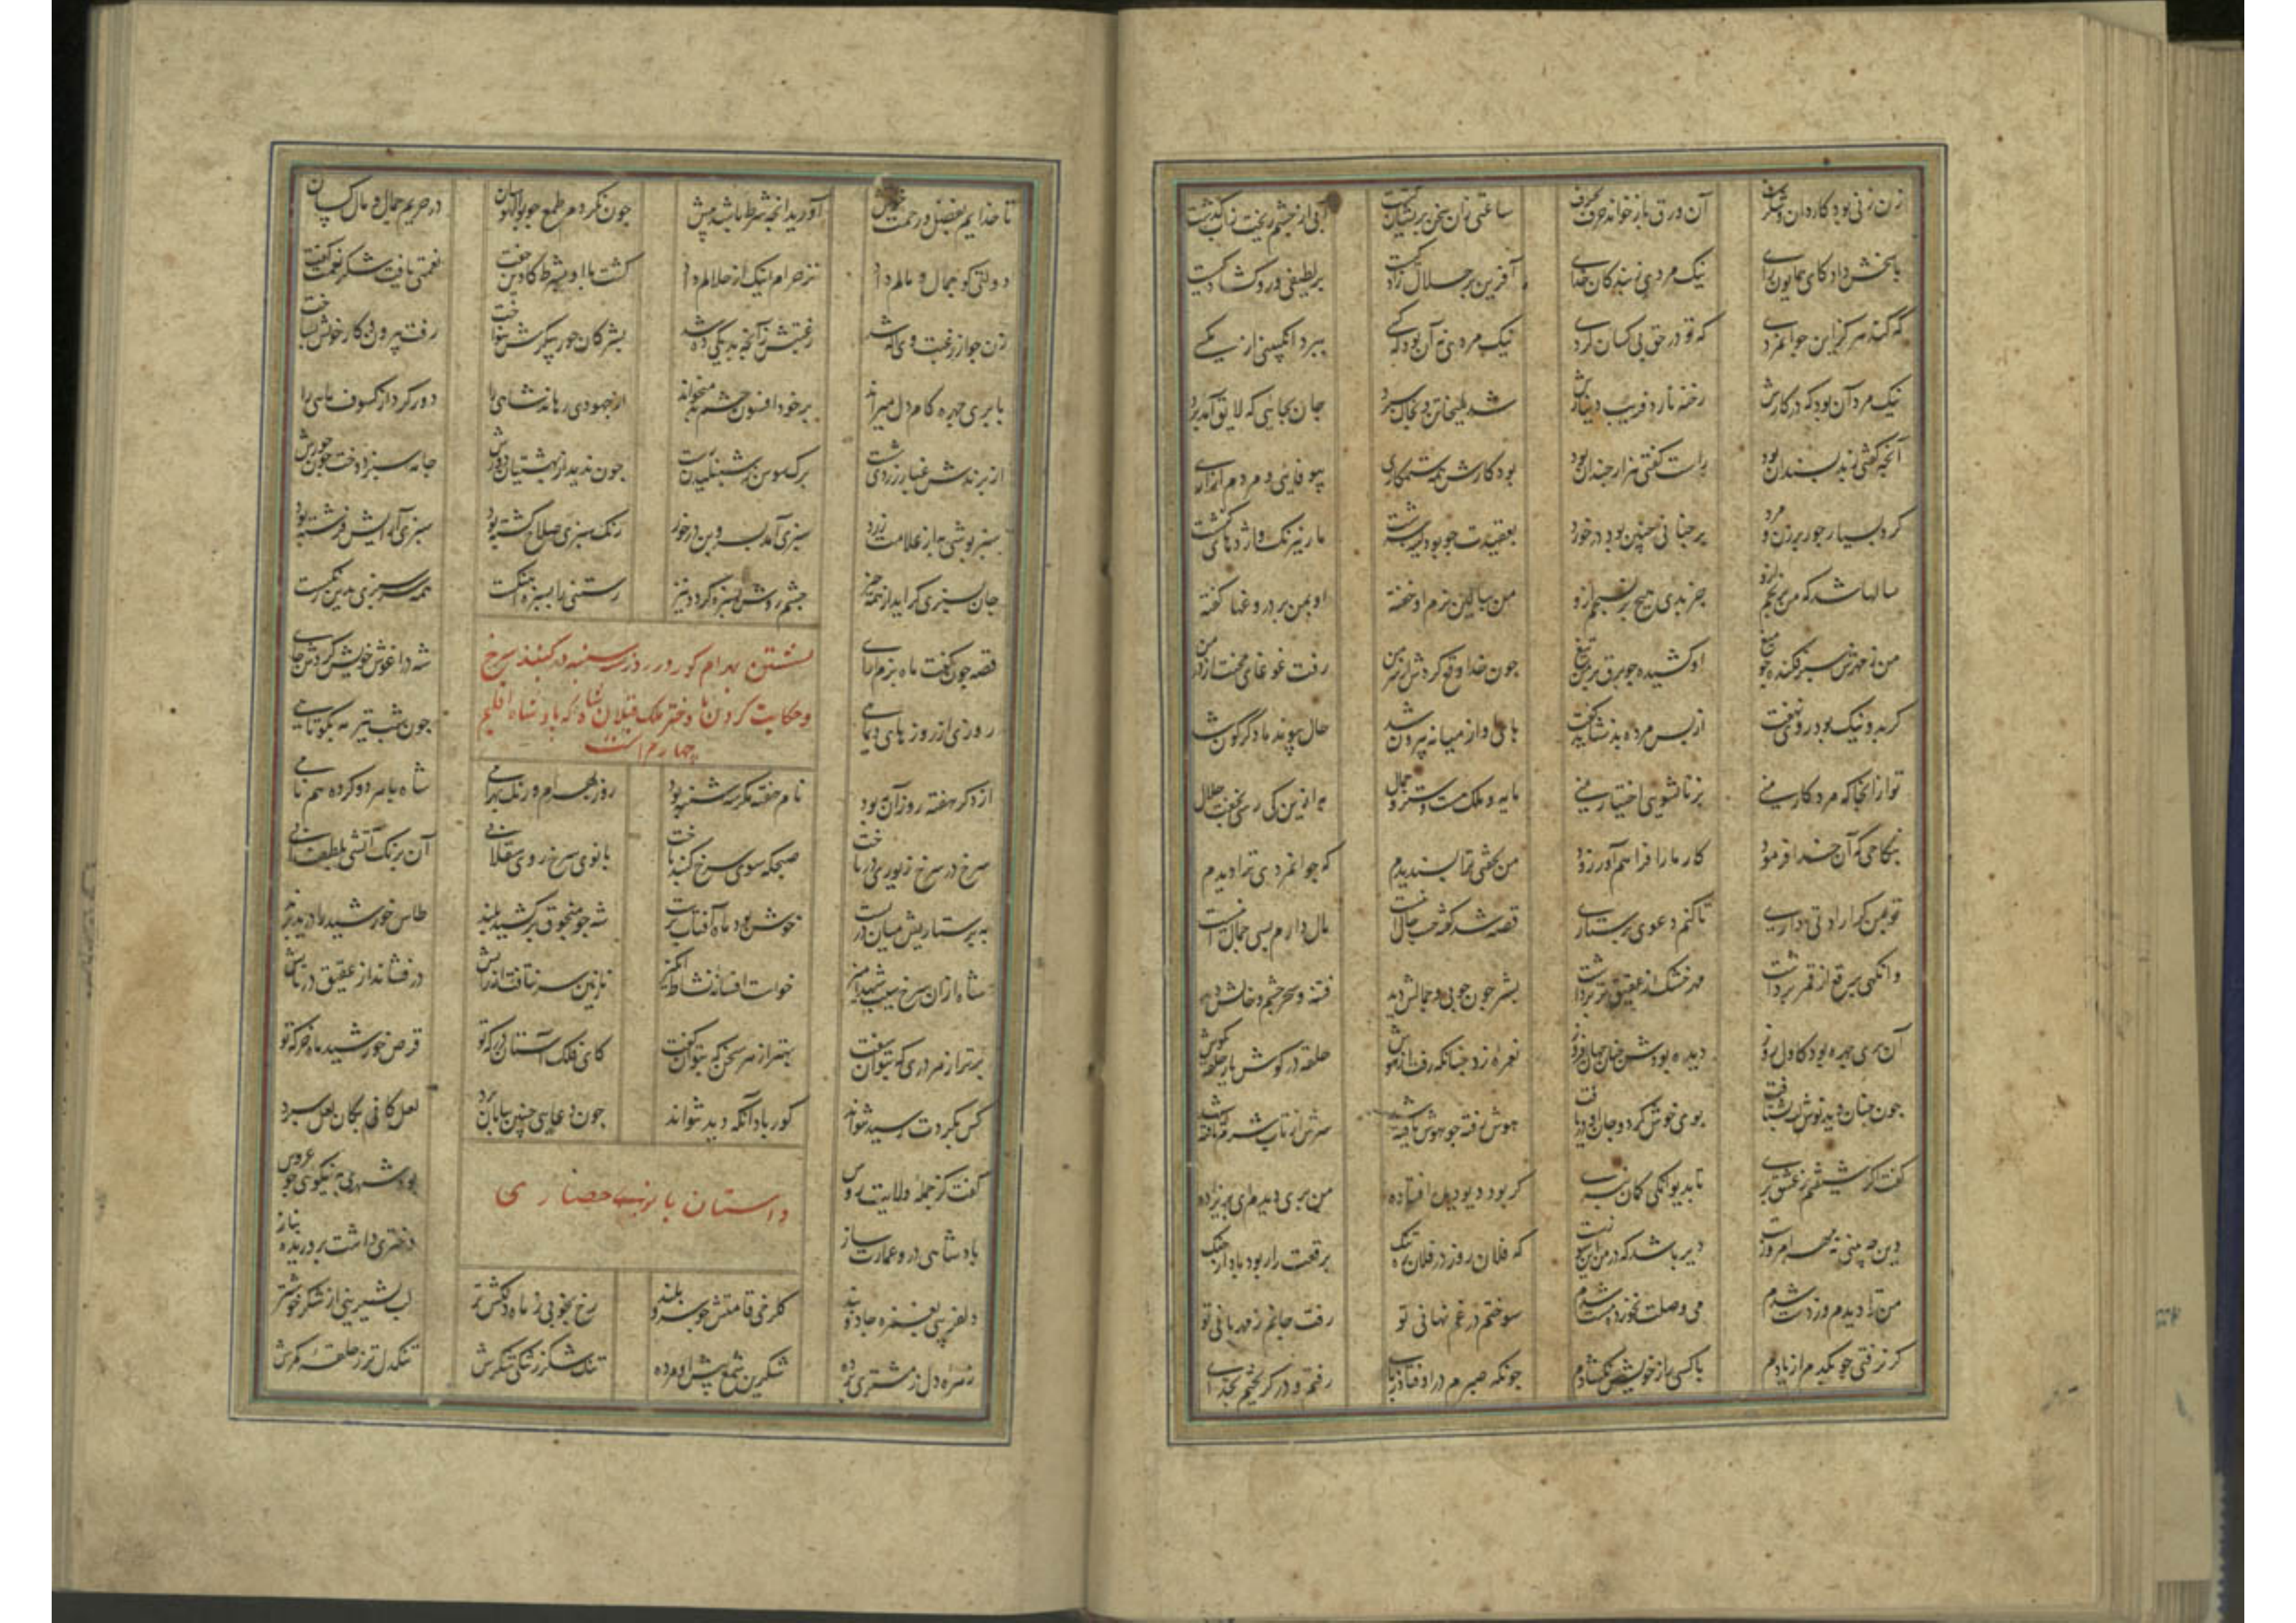 زن زنی بود کاردان و شگرف آن ورق باز خواند حرف بحرف ساعتی زان سخن پریشان گشت آبی از چشم ریخت زان بگذشت
پاسخش داد کای همایون رای نیک مردی ز بندگان خدای آفرین بر حلال زادگیت بر لطیفی و رو گشادگیت
که کند هرگز این جوانمردی که تو در حق بی کسان کردی نیک مردی نه آن بود که کسی ببرد انگبینی از مگسی
نیک مرد آن بود که در کارش رخنه نارد فریب دینارش شد ملیخا و تن بخاک سپرد جان بجایی که لایق آمد برد
آنچه گفتی ز بد پسندان بود راست گفتی هزار چندان بود بود کارش همه ستمکاری بیوفایی و مردم آزاری
کرد بسیار جور بر زن و مرد بر چنانی چنین بود در خورد بعقیدت جهود کینه سرشت مار نیرنگ و اژدهای کنشت
سالها شد که من برنجم ازو جز بدی هیچ بر نسنجم ازو من ببالین نرم او خفته او بمن بر دروغها گفته
من ز مهرش سپر فکنده چو میغ او کشیده چو برق بر من تیغ چون خدا دفع کردش از سر من رفت غوغای محنت از در من
گر بد و نیک بود روی نهفت از پس مرده بد نشاید گفت پای او از میانه بیرون شد حال پیوند ما دگرگون شد
تو از آنجا که مرد کار منی بزناشویی اختیار منی مایه و ملک هست و ستر و جمال به ازین کی رسی بجفت حلال
بنکاحی که آن خدا فرمود کار ما را فراهم آور زود من بجفتی ترا پسندیدم که جوانمردی ترا دیدم
تو بمن گر ارادتی داری تا کنم دعوی پرستاری قصه شد گفته حسب حال اینست مال دارم بسی جمال اینست
وانگهی برقع از قمر برداشت مهر خشک از عقیق تر برداشت بشر چون خوبی و جمالش دید فتنه و سحر چشم و خالش دید
آن پری چهره بود کاول روز دیده بودش چنان جهان افروز نعره زد چنانکه رفت از هوش حلقه در گوش یار حلقه بگوش
چون چنان دید نوش لب بشتافت بوی خوش کرد و جان او دریافت هوش رفته چو هوش یافته شد سرش از تاب شرم تافته شد
گفت اگر شیفتم ز عشق پری تا بدیوانگی گمان نبری گر بود دیو دیده افتاده من پری دیدم ای پریزاده
وین چه بینی نه مهر امروزست دیر باشد که در من این سوزست که فلان روز در فلان ره تنگ برقعت را ربود باد از چنگ
من ترا دیدم و ز دست شدم می وصلت نخورده مست شدم سوختم در غم نهانی تو رفت جانم ز مهربانی تو
گر نرفتی چو یکدم از یادم با کسی راز خویش نگشادم چونکه صبرم در اوفتاد ز پای رفتم و در گریختم بخدای
تا خدایم بفضل و رحمت خویش آورید آنچه شرط باشد پیش چون نکردم طمع چو بوالهوسان در حریم جمال و مال کسان
دولتی کو جمال و مالم داد نز حرام اینک از حلالم داد گشت با او بشرط کاوین جفت نعمتی یافت شکر نعمت گفت
زن چو از رغبت وی آگه شد رغبتش زآنچه بد یکی ده شد بشر کان حور پیکرش بنواخت رفت بیرون و کار خویش بساخت
با پری چهره کام دل میراند بر خود افسون چشم بد میخواند از جهودی رهاند شاهی را دور کرد از کسوف ماهی را
از پرندش غبار زردی شست برگ سوسن ز شنبلیدش رست چون ندید از بهشتیان دورش جامه سبز دوخت چون حورش
سبزپوشی به از علامت زرد سبزی آمد بسرو بن در خورد رنگ سبزی صلاح کشته بود سبزی آرایش فرشته بود
جان بسبزی گراید از همه چیز چشم روشن بسبزه گردد نیز رستنی را بسبزه آهنگست همه سرسبزی بدین رنگست
قصه چون گفت ماه بزم آرای شه در آغوش خویش کردش جای
نشستن بهرام گور در روز سه شنبه در گنبد سرخ
و حکایت کردن دختر ملک سقلاب شاه که پادشاه اقلیم
چهارم است
روزی از روزهای دیماهی چون شب تیر مه بکوتاهی
از دگر هفته روز آن به بود ناف هفته مگر سه شنبه بود روز بهرام و رنگ بهرامی شاه با هر دو کرده هم نامی
سرخ در سرخ زیوری بر ساخت صبحگه سوی سرخ گنبد تاخت بانوی سرخ روی سقلابی آن برنگ آتشی بلطف آبی
به پرستاریش میان دربست خوش بود ماه آفتاب پرست شب چو منجوق برکشید بلند طاق خورشید را درید پرند
شاه ازان سرخ سیب شهد آمیز خواست افسانه نشاط انگیز نازنین سر نتافت از رایش در فشاند از عقیق در پایش
کای فلک آستان درگه تو قرص خورشید ماه خرگه تو برتر از هر دری که بتوان سفت بهتر از هر سخن که بتوان گفت
کس بگردت رسید نتواند کور باد آنکه دید نتواند چون دعایی چنین بپایان برد لعل کانی بکان لعل سپرد
گفت کز جمله ولایت روس بود شهری بنیکویی چو عروس
داستان بانوی حصاری
پادشاهی درو عمارت ساز دختری داشت پرورنده بناز
دلفریبی بغمزه جادو بند گلرخی قامتش چو سرو بلند رخ بخوبی ز ماه دلکش تر لب بشیرینی از شکر خوشتر
زهره دل ز مشتری برده شکرین شمع پیش او مرده تنگ شکر ز تنگی شکرش تنگدل تر ز حلقه کمرش